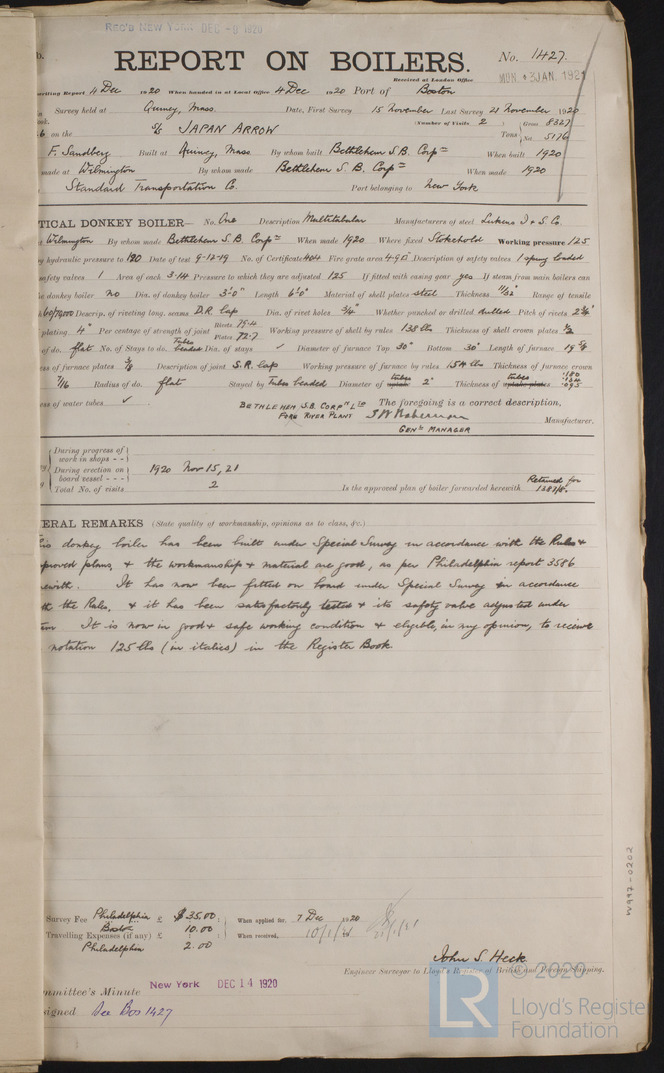 REC'D NEW YORK DEC -9 1920
REPORT ON BOILERS.
No. 1427.
Received at London Office MON. 3 JAN. 1921
writing Report 4 Dec 1920 When handed in at Local Office 4 Dec 1920 Port of Boston
Survey held at Quincy, Mass. Date, First Survey 15 November Last Survey 21 November 1920
(Number of Visits 2
on the S/S JAPAN ARROW Tons Gross 8327 Net 5176
F. Sandberg Built at Quincy, Mass By whom built Bethlehem S.B. Corpn When built 1920
made at Wilmington By whom made Bethlehem S.B. Corpn When made 1920
Standard Transportation Co. Port belonging to New York
TICAL DONKEY BOILER— No. One Description Multitubular Manufacturers of steel Lukens I & S. Co.
Wilmington By whom made Bethlehem S.B. Corpn When made 1920 Where fixed Stokehold Working pressure 125
by hydraulic pressure to 190 Date of test 9-12-19 No. of Certificate 404 Fire grate area 4.9 Description of safety valves 1 spring loaded
safety valves 1 Area of each 3.14 Pressure to which they are adjusted 125 If fitted with easing gear yes If steam from main boilers can
donkey boiler no Dia. of donkey boiler 3'.0" Length 6'.0" Material of shell plates steel Thickness 11/32" Range of tensile
60/70,000 Descrip. of riveting long. seams D.R. Lap Dia. of rivet holes 3/4" Whether punched or drilled drilled Pitch of rivets 2 3/4"
plating 4" Per centage of strength of joint Rivets 75.4 Plates 72.7 Working pressure of shell by rules 138 lbs Thickness of shell crown plates 1/2
of do. flat No. of Stays to do. Tubes beaded Dia. of stays ✓ Diameter of furnace Top 30" Bottom 30" Length of furnace 19 5/8
of furnace plates 3/8 Description of joint S.R. Lap Working pressure of furnace by rules 154 lbs Thickness of furnace crown
7/16 Radius of do. flat Stayed by Tubes beaded Diameter of tubes 2" Thickness of tubes .180 .134 .095
of water tubes ✓ The foregoing is a correct description,
BETHLEHEM S.B. CORPN LTD
FORE RIVER PLANT
Manufacturer.
GENL MANAGER
During progress of work in shops - -
During erection on board vessel - - - 1920 Nov 15, 21
Total No. of visits 2 Is the approved plan of boiler forwarded herewith Retained for 1383/8.
ERAL REMARKS (State quality of workmanship, opinions as to class, &c.)
is donkey boiler has been built under Special Survey in accordance with the Rules &
proved plans, & the workmanship & material are good, as per Philadelphia report 3586
ewith. It has now been fitted on board under Special Survey in accordance
the Rules, & it has been satisfactorily tested & its safety valve adjusted under
It is now in good & safe working condition & eligible, in my opinion, to receive
notation 125 lbs (in italics) in the Register Book.
Survey Fee Philadelphia £ $35.00 When applied for, 7 Dec 1920
Boston 10.00
Travelling Expenses (if any) £ When received, 10/1/21
Philadelphia 2.00
John S. Heck
Engineer Surveyor to Lloyd's Register of British and Foreign Shipping.
mmittee's Minute New York DEC 14 1920
signed See Bos 1427
W997-0202
© 2020
LR Lloyd's Register Foundation